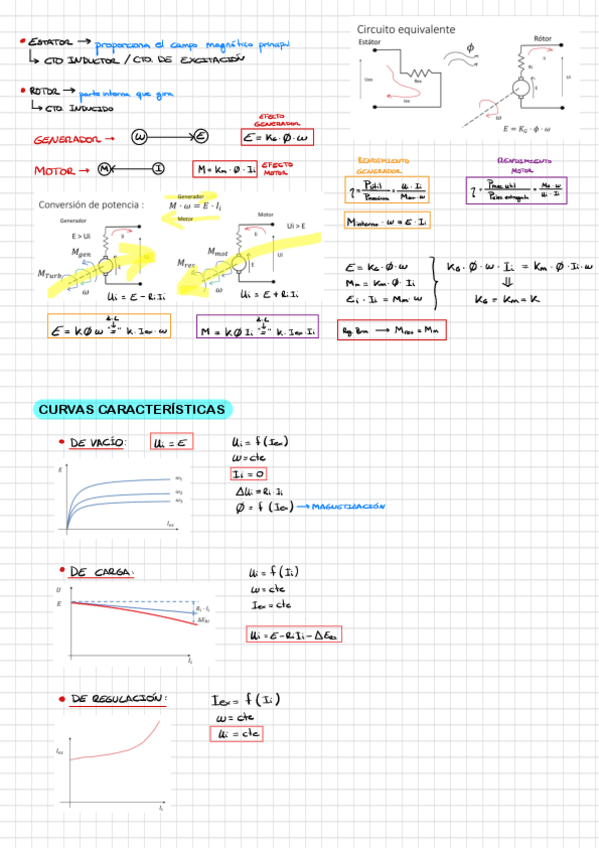 • ESTATOR → proporciona el campo magnético principal
↳ CTO INDUCTOR / CTO. DE EXCITACIÓN
• ROTOR → parte interna que gira
↳ CTO. INDUCIDO
GENERADOR → W E
EFECTO GENERADOR
E = KG · Ø · ω
MOTOR → M I
M = Km · Ø · Ii
EFECTO MOTOR
Circuito equivalente
Estátor
Rótor
ϕ
Rex
Uex
Iex
Ii
Ri
Ui
E
ω
E = KG · ϕ · ω
Conversión de potencia :
Generador
M · ω = E · Ii
Motor
Generador
E > Ui
Mgen
MTurb
ω
Ui = E - Ri Ii
Motor
Ui > E
Mmot
Mres
ω
Ui = E + Ri Ii
E = K Ø ω "=" K · Iex · ω
M = K Ø Ii "=" K · Iex · Ii
RENDIMIENTO GENERADOR
η = Pútil / Pmecánica = Ui · Ii / Mtur · ω
RENDIMIENTO MOTOR
η = Pmec útil / Pelec entregada = Mu · ω / Ui · Ii
Minterno · ω = E · Ii
E = KG · Ø · ω
Mm = Km · Ø · Ii
Ei · Ii = Mm · ω
KG · Ø · ω · Ii = Km · Ø · Ii · ω
⇓
KG = Km = K
Reg. Perm → Mres = Mm
CURVAS CARACTERÍSTICAS
• DE VACÍO: Ui = E
Ui = f (Iex)
ω = cte
Ii = 0
ΔUi = Ri · Ii
Ø = f (Iex) → MAGNETIZACIÓN
E
ω1
ω2
ω3
Iex
• DE CARGA:
Ui = f (Ii)
ω = cte
Iex = cte
Ui = E - Ri Ii - ΔERI
U
E
Ri · Ii
ΔERI
Ii
• DE REGULACIÓN:
Iex = f (Ii)
ω = cte
Ui = cte
Iex
Ii